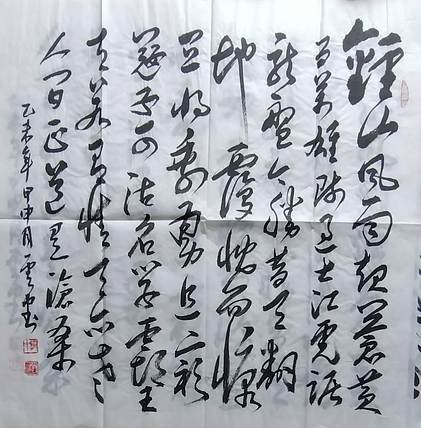 鍾山风雨起蒼黄
百万雄师过大江虎踞
龙盘今胜昔天翻
地覆慨而慷
宜将剩勇追穷
寇不可沽名学霸王
天若有情天亦老
人间正道是滄桑
乙未年甲申月